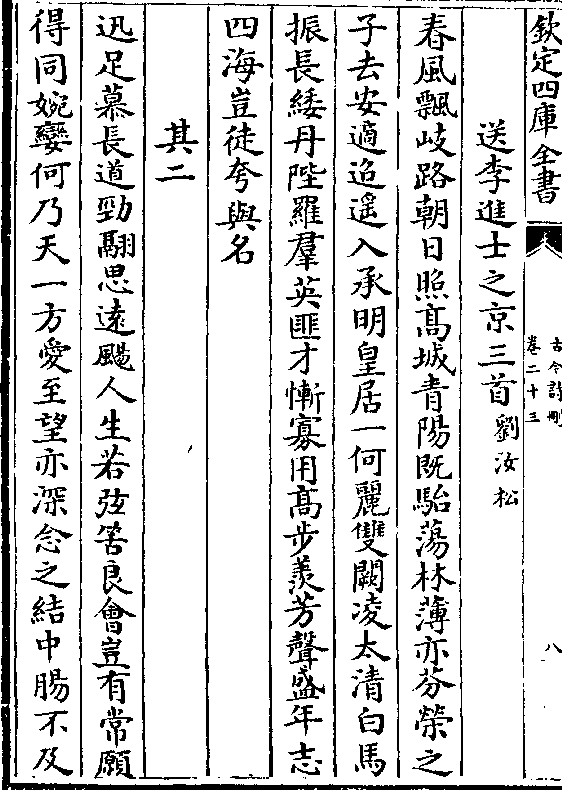 欽定四庫全書
古今詩刪
卷二十三
八
送李進士之京三首劉汝松
春風飄岐路朝日照髙城青陽既駘蕩林薄亦芬榮之
子去安適迢遥入承明皇居一何麗雙闕凌太清白馬
振長緌丹陛羅羣英匪才慚寡用髙步羨芳聲盛年志
四海豈徒夸與名
其二
迅足慕長道勁翮思逺颺人生若弦筈良會豈有常願
得同婉孌何乃天一方愛至望亦深念之結中腸不及